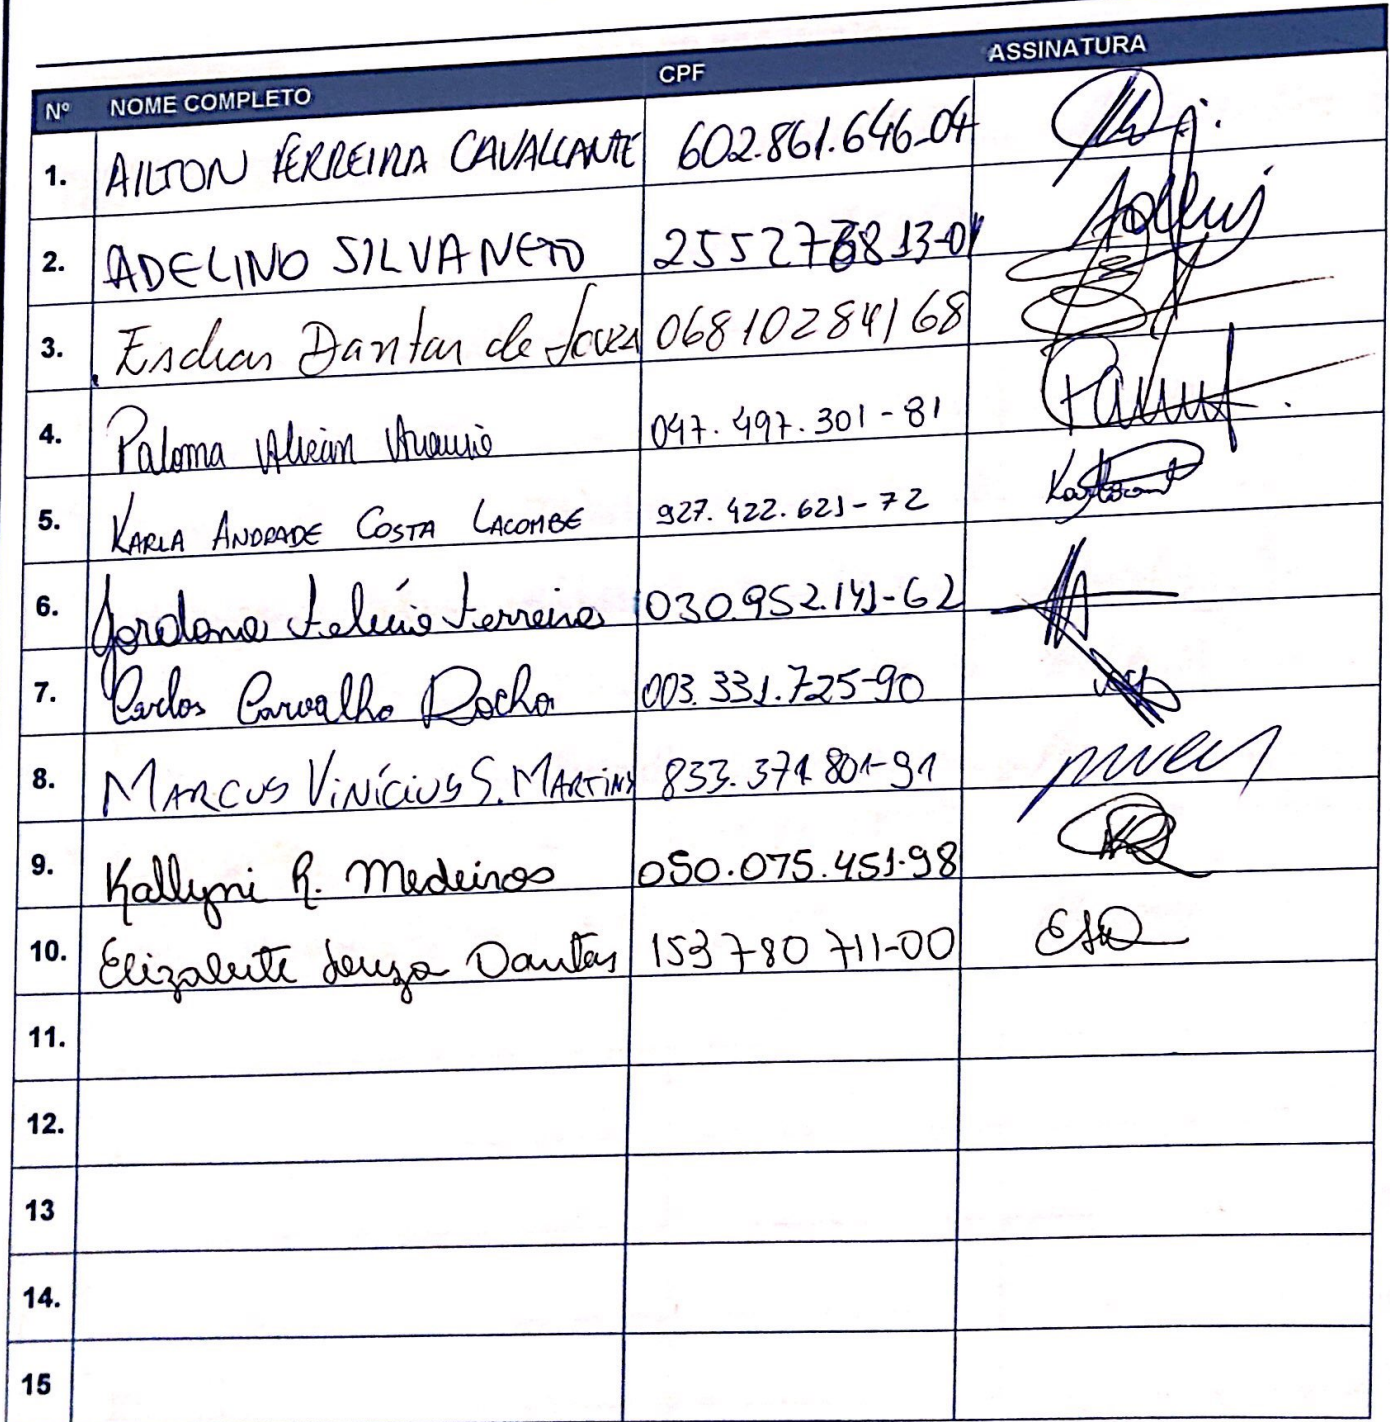 Nº NOME COMPLETO CPF ASSINATURA
1. AILTON FERREIRA CAVALCANTE 602.861.646-04
2. ADELINO SILVA NETO
3. Esdras Dantas de Souza 06810284168
4. Paloma 047.497.301-81
5. KARLA ANDRADE COSTA LACOMBE 927.422.621-72
6. Jordana Felício Ferreira 030.952.141-62
7. Carlos Carvalho Rocha 003.331.725-90
8. MARCUS VINÍCIUS S. MARTINS 833.371.801-91
9. Kallyni R. Medeiros 050.075.451-98
10. Elizabete Souza Dantas 153780711-00
11.
12.
13
14.
15